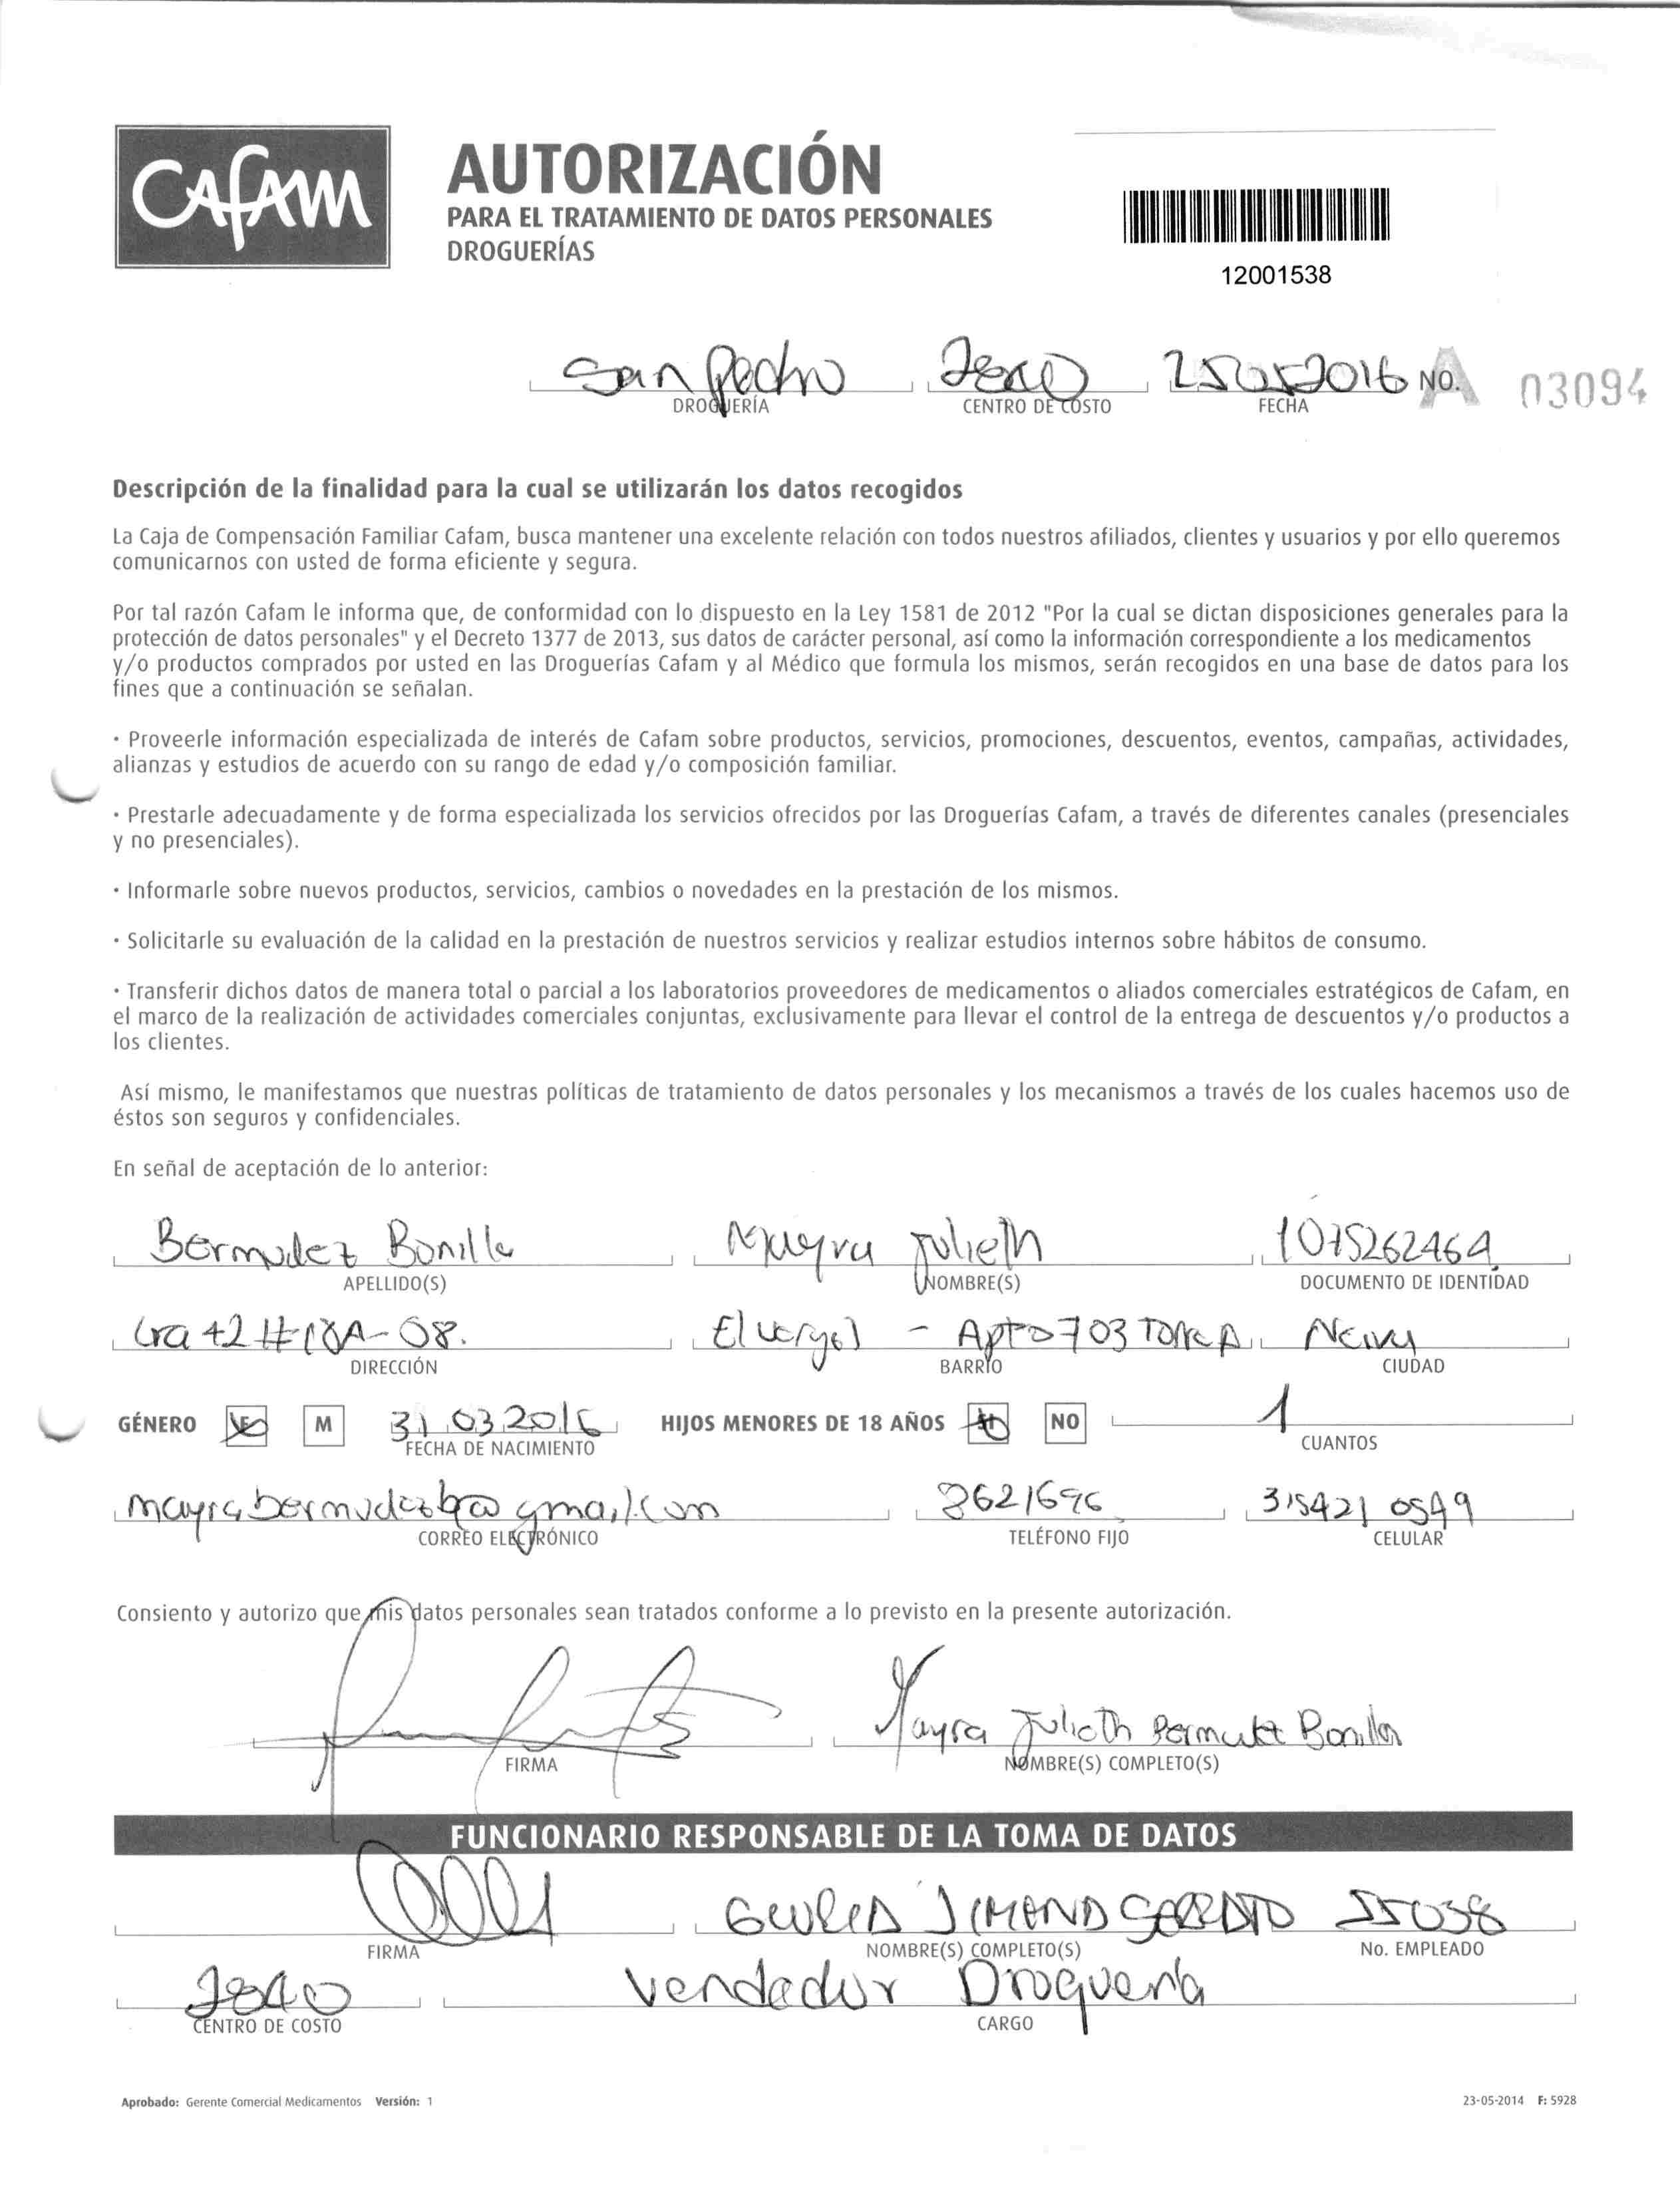 Cafam
AUTORIZACIÓN
PARA EL TRATAMIENTO DE DATOS PERSONALES
DROGUERÍAS
12001538
San Pedro 25052016 NO. A 03094
DROGUERÍA CENTRO DE COSTO FECHA
Descripción de la finalidad para la cual se utilizarán los datos recogidos
La Caja de Compensación Familiar Cafam, busca mantener una excelente relación con todos nuestros afiliados, clientes y usuarios y por ello queremos
comunicarnos con usted de forma eficiente y segura.
Por tal razón Cafam le informa que, de conformidad con lo dispuesto en la Ley 1581 de 2012 "Por la cual se dictan disposiciones generales para la
protección de datos personales" y el Decreto 1377 de 2013, sus datos de carácter personal, así como la información correspondiente a los medicamentos
y/o productos comprados por usted en las Droguerías Cafam y al Médico que formula los mismos, serán recogidos en una base de datos para los
fines que a continuación se señalan.
· Proveerle información especializada de interés de Cafam sobre productos, servicios, promociones, descuentos, eventos, campañas, actividades,
alianzas y estudios de acuerdo con su rango de edad y/o composición familiar.
· Prestarle adecuadamente y de forma especializada los servicios ofrecidos por las Droguerías Cafam, a través de diferentes canales (presenciales
y no presenciales).
· Informarle sobre nuevos productos, servicios, cambios o novedades en la prestación de los mismos.
· Solicitarle su evaluación de la calidad en la prestación de nuestros servicios y realizar estudios internos sobre hábitos de consumo.
· Transferir dichos datos de manera total o parcial a los laboratorios proveedores de medicamentos o aliados comerciales estratégicos de Cafam, en
el marco de la realización de actividades comerciales conjuntas, exclusivamente para llevar el control de la entrega de descuentos y/o productos a
los clientes.
Así mismo, le manifestamos que nuestras políticas de tratamiento de datos personales y los mecanismos a través de los cuales hacemos uso de
éstos son seguros y confidenciales.
En señal de aceptación de lo anterior:
Bermudez Bonilla Mayra Julieth 1075262464
APELLIDO(S) NOMBRE(S) DOCUMENTO DE IDENTIDAD
Cra 42 #18A-08. El vergel - Apto 703 Torre A Neiva
DIRECCIÓN BARRIO CIUDAD
GÉNERO F M 31 03 2016 HIJOS MENORES DE 18 AÑOS NO 1
FECHA DE NACIMIENTO CUANTOS
mayrabermudezb@gmail.com 8621696 315421 0549
CORREO ELECTRÓNICO TELÉFONO FIJO CELULAR
Consiento y autorizo que mis datos personales sean tratados conforme a lo previsto en la presente autorización.
Mayra Julieth Bermudez Bonilla
FIRMA NOMBRE(S) COMPLETO(S)
FUNCIONARIO RESPONSABLE DE LA TOMA DE DATOS
55038
FIRMA NOMBRE(S) COMPLETO(S) No. EMPLEADO
Vendedor Droguería
CENTRO DE COSTO CARGO
Aprobado: Gerente Comercial Medicamentos Versión: 1 23-05-2014 F: 5928